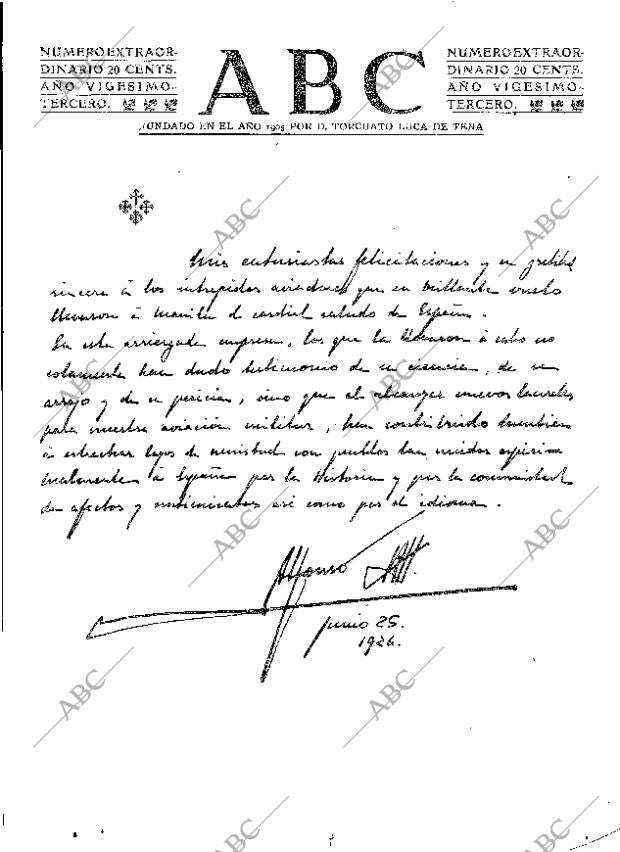 NUMERO EXTRAOR-
DINARIO 20 CENTS.
AÑO VIGESIMO-
TERCERO.
ABC
NUMERO EXTRAOR-
DINARIO 20 CENTS.
AÑO VIGESIMO-
TERCERO.
FUNDADO EN EL AÑO 1905 POR D. TORCUATO LUCA DE TENA
Mis entusiastas felicitaciones y mi gratitud
sincera á los intrépidos aviadores que en brillante vuelo
llevaron á Manila el cordial saludo de España.
En esta arriesgada empresa, los que la llevaron á cabo no
solamente han dado testimonio de su ciencia, de su
arrojo y de su pericia, sino que al alcanzar nuevos laureles
para nuestra aviación militar, han contribuido también
á estrechar lazos de amistad con pueblos tan unidos espiri
tualmente á España por la Historia y por la comunidad
de afectos y sentimientos así como por el idioma.
Alfonso XIII
junio 25.
1926.